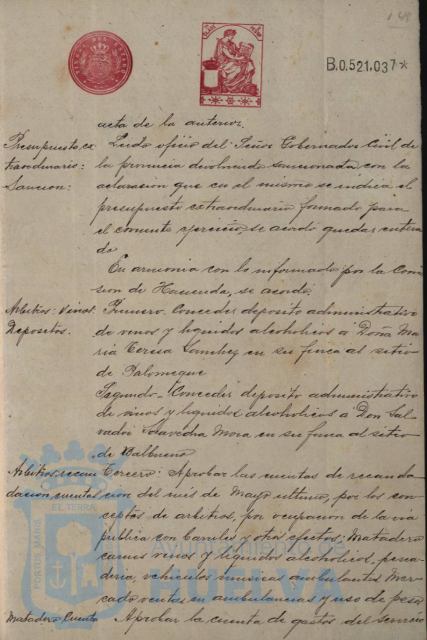 B.0.521.037*
acta de la anterior.
Presupuesto ex
traordinario:
Sancion:
Leido oficio del Señor Gobernador Civil de
la provincia devolviendo sancionado con la
aclaracion que en el mismo se indica el
presupuesto extraordinario formado para
el corriente ejercicio, se acordó quedar entera
do
En armonia con lo informado por la Comi
sion de Hacienda, se acordó:
Arbitrios: vinos.
Depositos.
Primero. Conceder deposito administrativo
de vinos y liquidos alcoholicos á Doña Ma
ria Teresa en su finca al sitio
de Palomeque
Segundo- Conceder deposito administrativo
de vinos y liquidos alcoholicos á Don Sal
vador Saavedra Mora en su finca al sitio
de Balbueno
Arbitrios: recau
dacion, cuentas
Tercero: Aprobar las cuentas de recauda
cion del mes de Mayo ultimo, por los con
ceptos de arbitrios, por ocupacion de la via
publica con Carriles y otros efectos; Matadero
carnes vinos y liquidos alcoholicos, pesca
deria, vehiculos musicas ambulantes Mer
cado ventas en ambulancias y uso de pesas
Matadero Cuenta
Aprobar la cuenta de gastos del servicio
EL TERRA
PORTUS MARIS